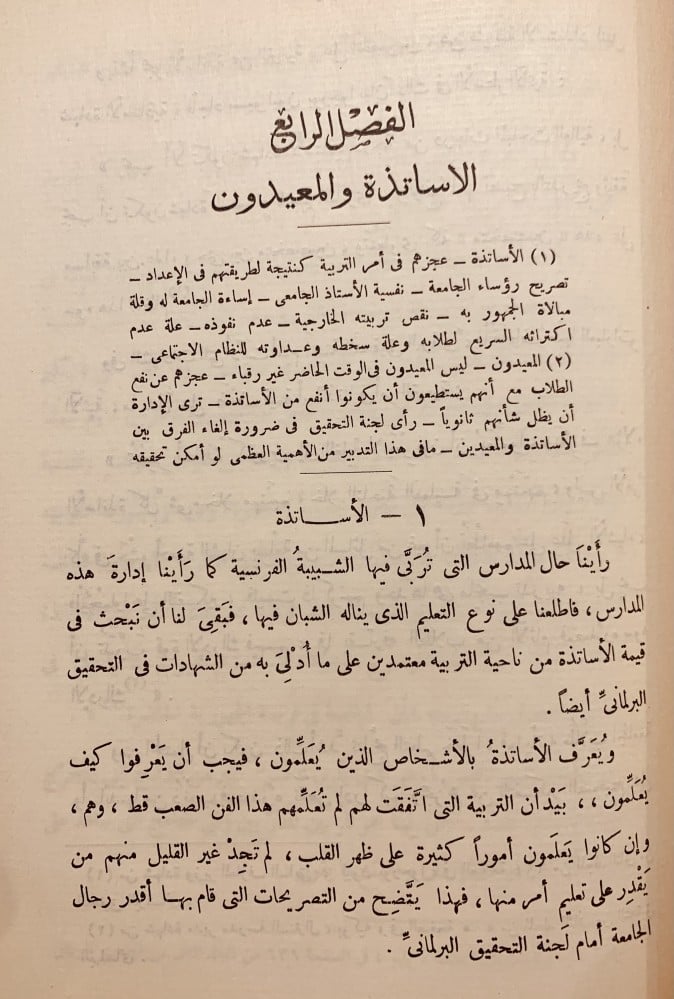 الفصل الرابع
الاساتذة والمعيدون
(١) الأساتذة ــ عجزهم فى أمر التربية كنتيجة لطريقتهم فى الإعداد ــ
تصريح رؤساء الجامعة ــ نفسية الأستاذ الجامعى ــ إساءة الجامعة له وقلة
مبالاة الجمهور به ــ نقص تربيته الخارجية ــ عدم نفوذه ــ علة عدم
اكتراثه السريع لطلابه وعلة سخطه وعداوته للنظام الاجتماعى ــ
(٢) المعيدون ــ ليس المعيدون فى الوقت الحاضر غير رقباء ــ عجزهم عن نفع
الطلاب مع أنهم يستطيعون أن يكونوا أنفع من الأساتذة ــ ترى الإدارة
أن يظل شأنهم ثانوياً ــ رأى لجنة التحقيق فى ضرورة إلغاء الفرق بين
الأساتذة والمعيدين ــ مافى هذا التدبير من الأهمية العظمى لو أمكن تحقيقه
١ – الأســاتذة
رأَيْنَا حال المدارس التى تُرَبَّى فيها الشبيبةُ الفرنسية كما رَأَيْنا إدارةَ هذه
المدارس، فاطلعنا على نوع التعليم الذى يناله الشبان فيها، فَبَقِىَ لنا أن نَبْحث فى
قيمة الأساتذة من ناحية التربية معتمدين على ما أُدْلِىَ به من الشهادات فى التحقيق
البرلمانىِّ أيضاً.
ويُعَرَّف الأساتذةُ بالأشخاص الذين يُعَلِّمون، فيجب أن يَعْرِفوا كيف
يُعَلِّمون،، بَيْدَ أن التربية التى اتَّفَقَت لهم لم تُعَلِّمهم هذا الفن الصعب قط، وهم،
وإن كانوا يَعلَمون أموراً كثيرة على ظهر القلب، لم تَجِدْ غير القليل منهم من
يَقْدِر على تعليم أمر منها، فهذا يَتَّضِح من التصريحات التى قام بها أقدر رجال
الجامعة أمام لَجنة التحقيق البرلمانىِّ.